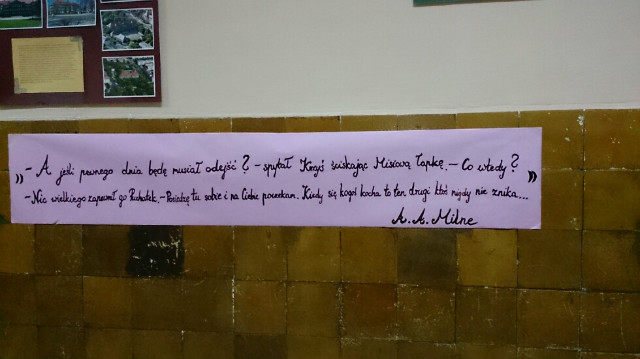 „- A jeśli pewnego dnia będę musiał odejść? - spytał Krzyś ściskając Misiową łapkę. - Co wtedy?”
- Nic wielkiego zapewnił go Puchatek. - Posiedzę tu sobie i na Ciebie poczekam. Kiedy się kogoś kocha to ten drugi ktoś nigdy nie znika...
A. A. Milne